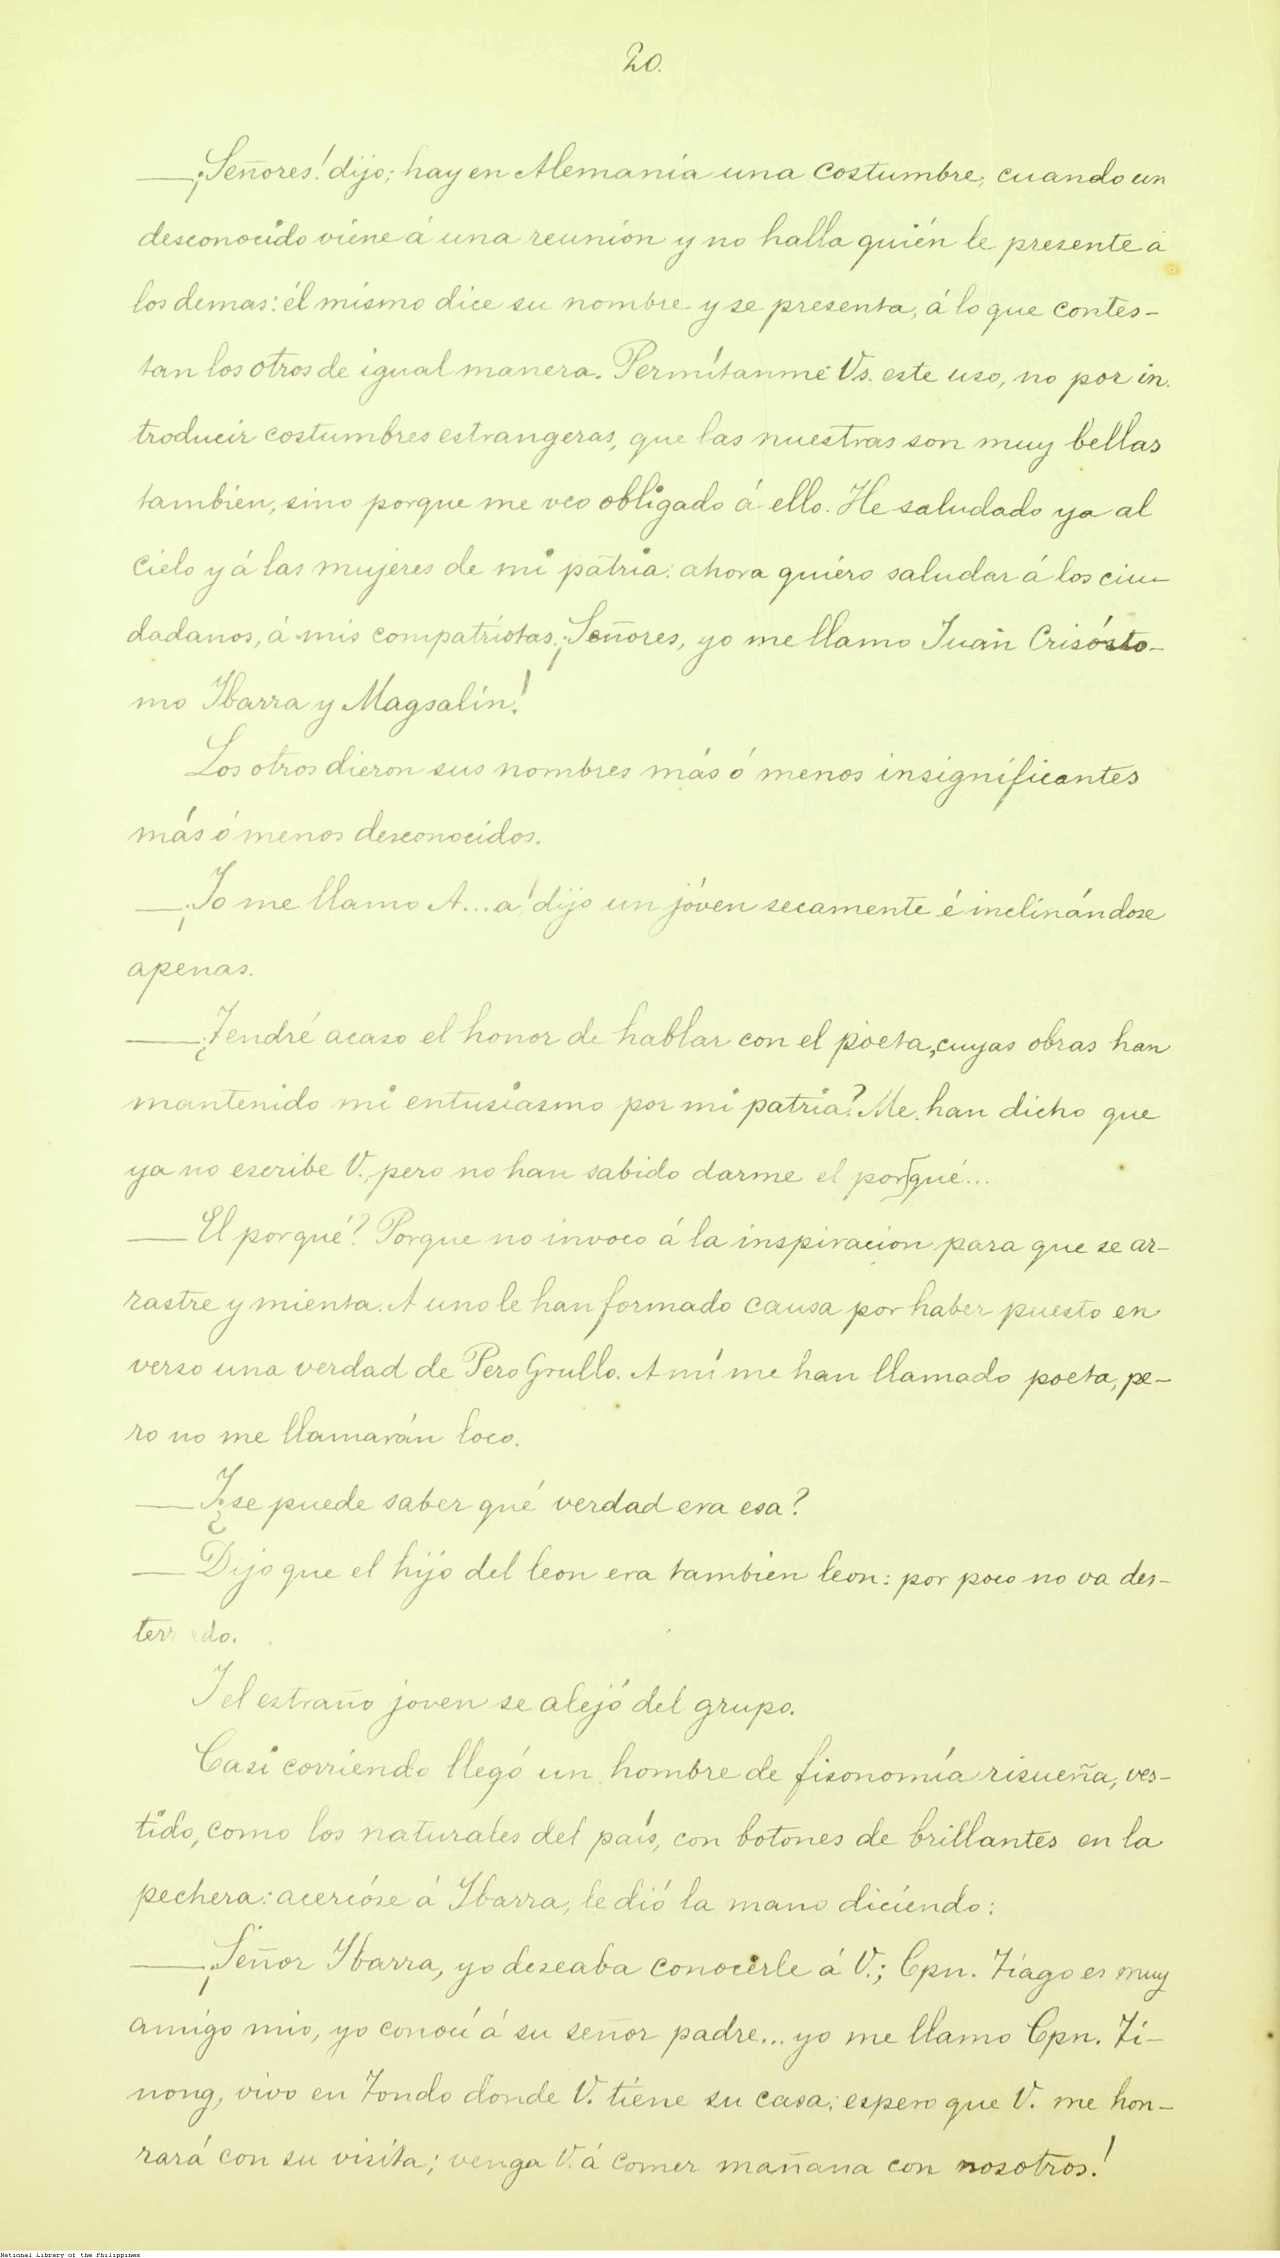 20.
—¡Señores! dijo; hay en Alemania una costumbre, cuando un
desconocido viene á una reunion y no halla quién le presente á
los demas: él mismo dice su nombre y se presenta, á lo que contes-
tan los otros de igual manera. Permítanme Vs. este uso, no por in-
troducir costumbres estrangeras, que las nuestras son muy bellas
tambien, sino porque me veo obligado á ello. He saludado ya al
cielo y á las mujeres de mi patria: ahora quiero saludar á los ciu-
dadanos, á mis compatriotas. ¡Señores, yo me llamo Juan Crisósto-
mo Ibarra y Magsalin!
Los otros dieron sus nombres más ó menos insignificantes
más ó menos desconocidos.
—¡Yo me llamo A...a! dijo un jóven secamente é inclinándose
apenas.
—¿Tendré acaso el honor de hablar con el poeta, cuyas obras han
mantenido mi entusiasmo por mi patria? Me han dicho que
ya no escribe V., pero no han sabido darme el por qué...
—El porqué? Porque no invoco á la inspiracion para que se ar-
rastre y mienta. A uno le han formado causa por haber puesto en
verso una verdad de Pero Grullo. A mí me han llamado poeta, pe-
ro no me llamarán loco.
—Y ¿se puede saber qué verdad era esa?
—Dijo que el hijo del leon era tambien leon: por poco no va des-
terrado.
Y el estraño joven se alejó del grupo.
Casi corriendo llegó un hombre de fisonomía risueña, ves-
tido, como los naturales del país, con botones de brillantes en la
pechera: acercóse á Ibarra, le dió la mano diciendo:
—¡Señor Ibarra, yo deseaba conocerle á V.; Cpn. Tiago es muy
amigo mio, yo conocí á su señor padre... yo me llamo Cpn. Ti-
nong, vivo en Tondo donde V. tiene su casa; espero que V. me hon-
rará con su visita; venga V. á comer mañana con nosotros!
National Library of the Philippines